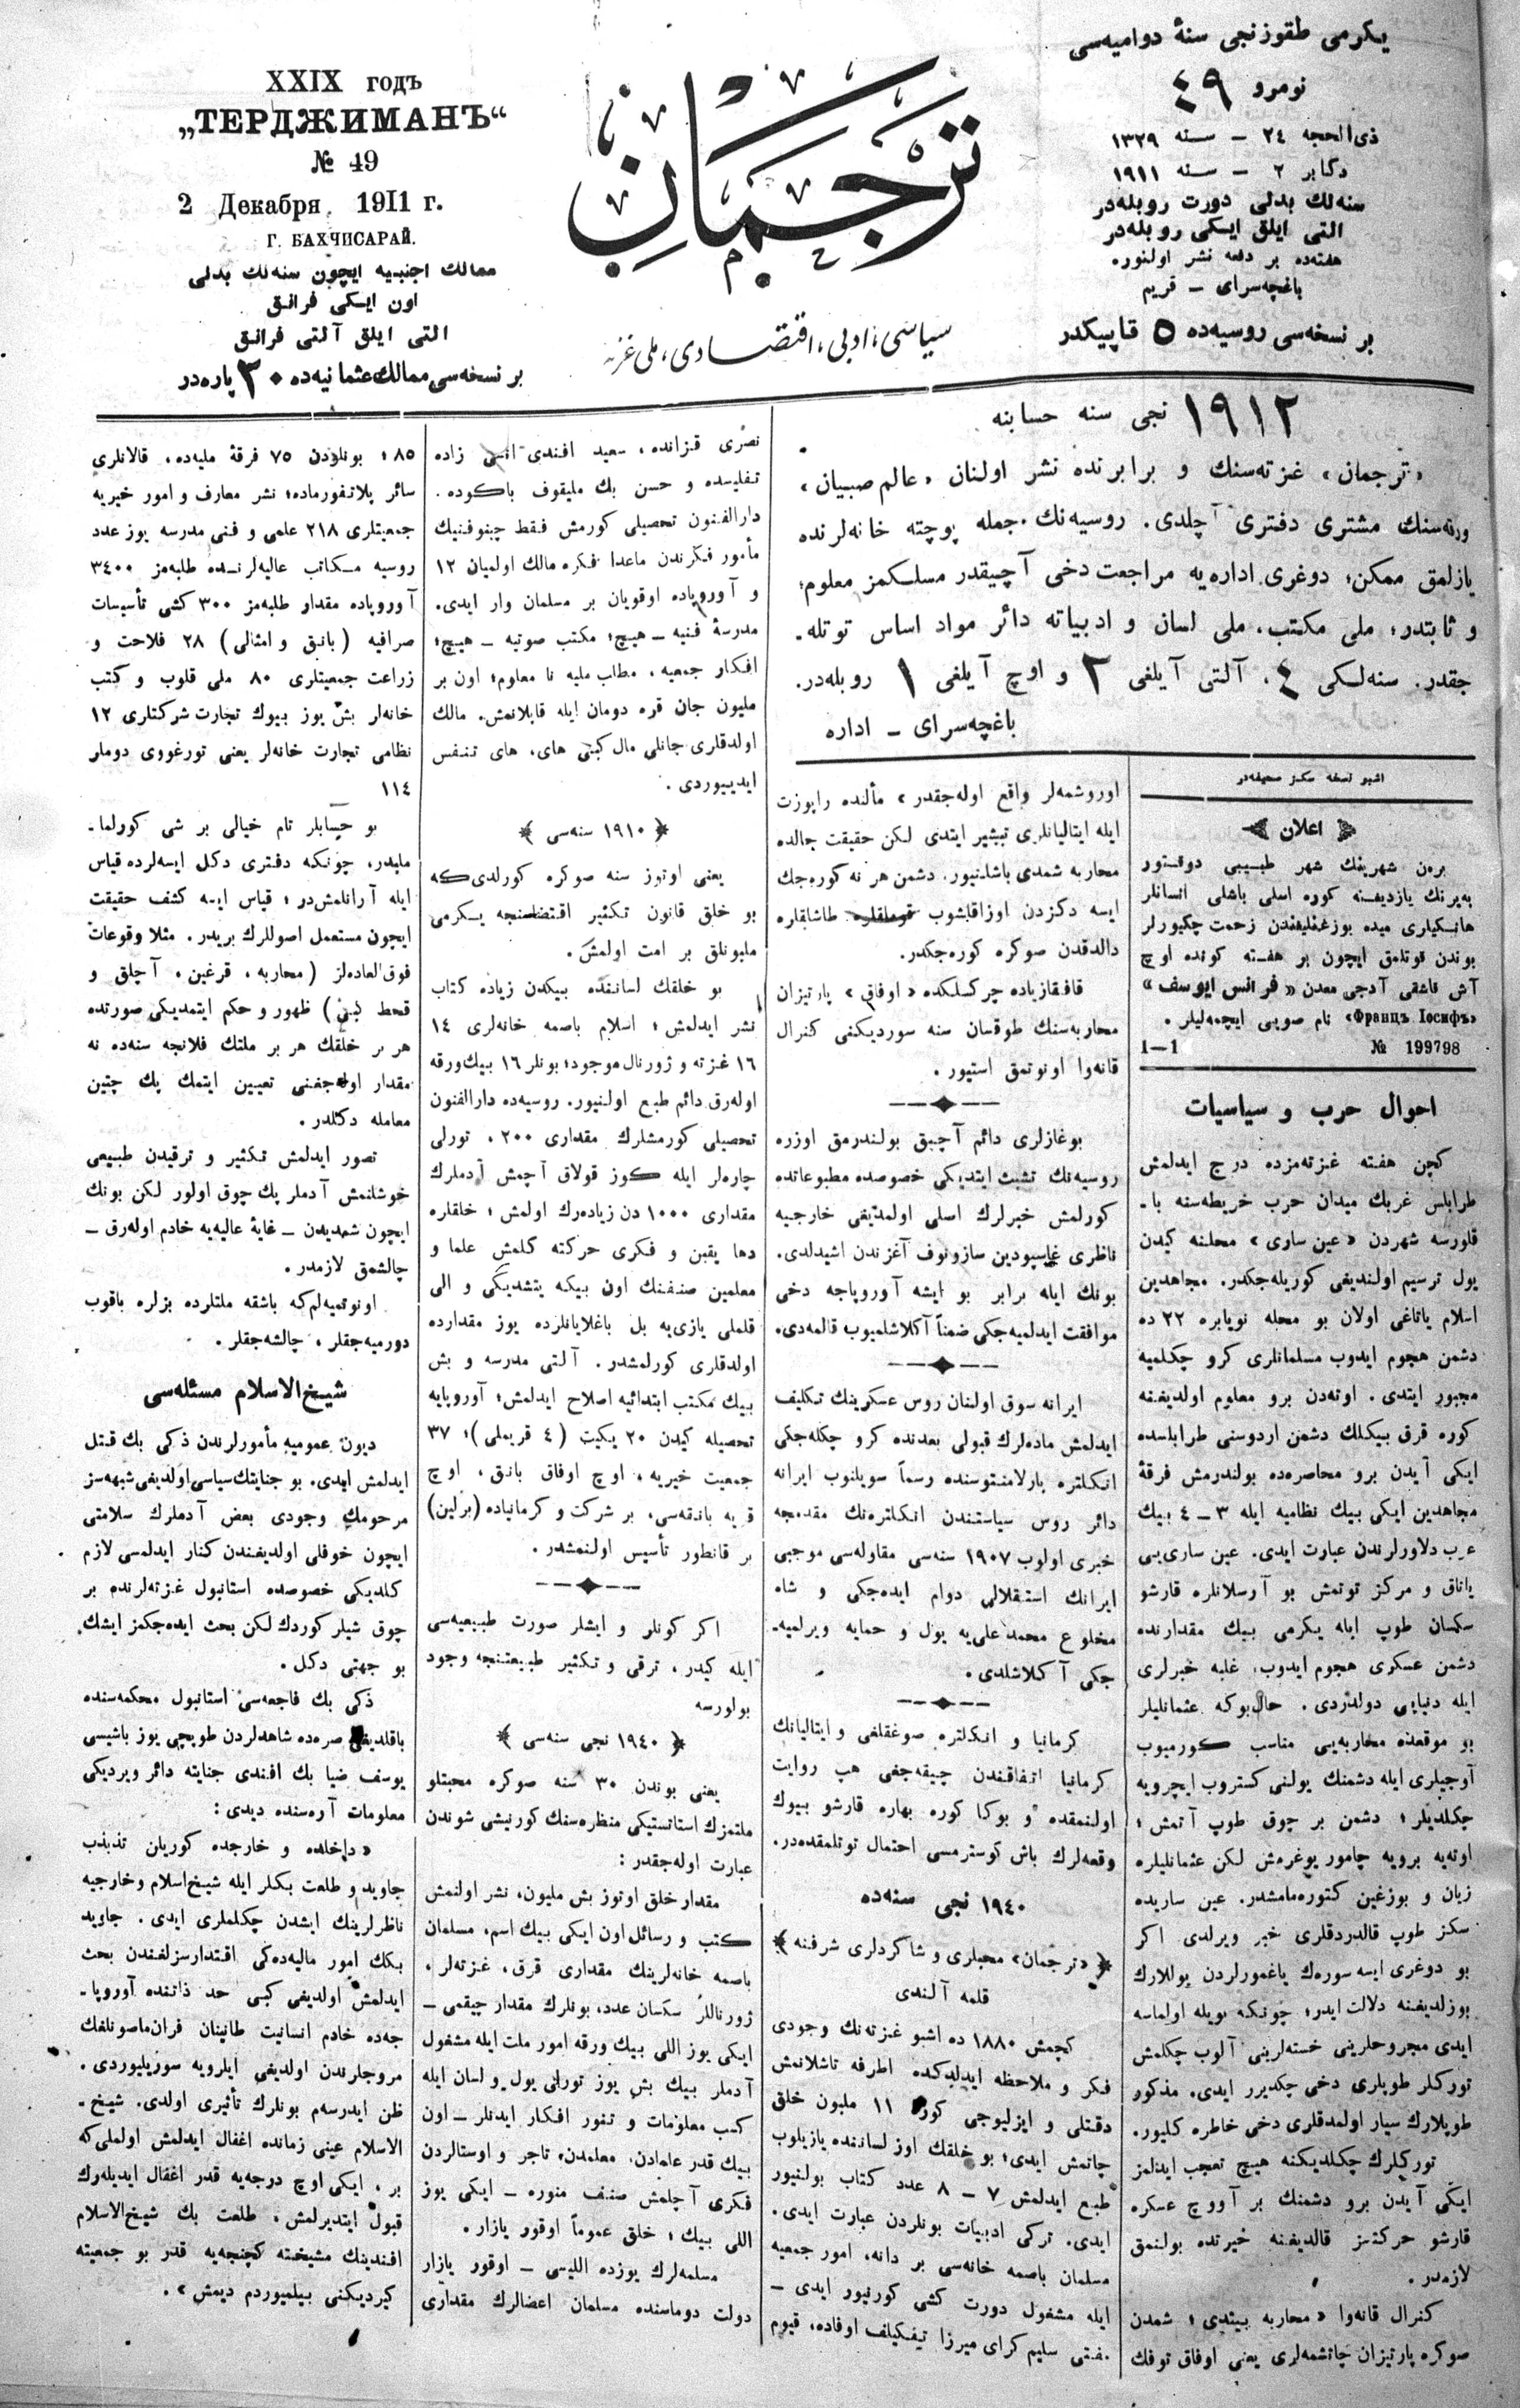 يكرمی طقوزنجی سنۀ دواميه‌سی
نومرو ٤٩
ذی‌الحجه ٢٤ – سنه ١٣٢٩
دكابر ٢ – سنه ١٩١١
سنه‌لك بدلی دورت روبله‌در
التی ايلق ايكی روبله‌در
هفته‌ده بر دفعه نشر اولنور.
باغچه‌سرای – قريم
بر نسخه‌سی روسيه‌ده ٥ قاپيكدر
ترجمان
سياسی، ادبی، اقتصادی، ملی غزته
XXIX годъ
„ТЕРДЖИМАНЪ“
№ 49
2 Декабря 1911 г.
Г. БАХЧИСАРАЙ.
ممالك اجنبيه ايچون سنه‌لك بدلی
اون ايكی فرانق
التی ايلق آلتی فرانق
بر نسخه‌سی ممالك عثمانيه‌ده ٣٠ پاره‌در
١٩١٢ نجی سنه حسابنه
«ترجمان» غزته‌سنك و برابرنده نشر اولنان «عالم صبيان»
ورقه‌سنك مشتری دفتری آچلدی. روسيه‌نك جمله پوچته خانه‌لرنده
يازلمق ممكن؛ دوغری اداره‌يه مراجعت دخی آچيقدر مسلكمز معلوم؛
و ثابتدر؛ ملی مكتب، ملی لسان و ادبياته دائر مواد اساس توتله‌ـ
جقدر. سنه‌لكی ٤، آلتی آيلغی ٢ و اوچ آيلغی ١ روبله‌در.
باغچه‌سرای – اداره
اشبو نسخه سكز صحيفه‌در
اعلان
برەن شهرينك شهر طبيبی دوقتور
په‌يرنك يازديغنه كوره اسلی باشلی انسانلر
هانكياری ميده بوزغنليغندن زحمت چكيورلر
بوندن قوتلمق ايچون بر هفته كونده اوچ
آش قاشقی آدجی معدن «فرانس ايوسف»
«Францъ Іосифъ» نام صويی ايچمه‌ليلر.
№ 199798 1—1
احوال حرب و سياسيات
كچن هفته غزته‌مزده درج ايدلمش
طرابلس غربك ميدان حرب خريطه‌سنه با ـ
قلورسه شهردن «عين ساری» محلنه كيدن
يول ترسيم اولنديغی كوريله‌جكدر. مجاهدين
اسلام ياتاغی اولان بو محله نويابره ٢٢ ده
دشمن هجوم ايدوب مسلمانلری كرو چكلميه
مجبور ايتدی. اوته‌دن برو معلوم اولديغنه
كوره قرق بيكلك دشمن اردوسنی طرابلسده
ايكی آيدن برو محاصره‌ده بولندرمش فرقۀ
مجاهدين ايكی بيك نظاميه ايله ٣ – ٤ بيك
عرب دلاورلرندن عبارت ايدی. عين ساری‌يی
ياتاق و مركز توتمش بو آرسلانلره قارشو
سكسان طوپ ايله يكرمی بيك مقدارنده
دشمن عسكری هجوم ايدوب، غلبه خبرلری
ايله دنيايی دولدردی. حال‌بوكه عثمانليلر
بو موقعده محاربه‌يی مناسب كورميوب
آوجيلری ايله دشمنك يولنی كستروب ايچرويه
چكلديلر؛ دشمن بر چوق طوپ آتمش؛
اوته‌يه برويه چامور يوغرمش لكن عثمانليلره
زيان و بوزغين كتوره‌مامشدر. عين ساريده
سكز طوپ قالدردقلری خبر ويرلدی اكر
بو دوغری ايسه سوره‌ك ياغمورلردن يوللارك
بوزلديغنه دلالت ايدر؛ چونكه بويله اولماسه
ايدی مجروحلرينی خسته‌لرينی آلوب چكلمش
توركلر طوپلری دخی چكديرر ايدی. مذكور
طوپلارك سيار اولمدقلری دخی خاطره كليور.
توركلرك چكلديكنه هيچ تعجب ايدلمز
ايكی آيدن برو دشمنك بر آووچ عسكره
قارشو حركتسز قالديغنه خيرتده بولنمق
لازمدر.
كنرال قانه‌وا «محاربه بيتدی؛ شمدن
صوكره پارتيزان چاتشمه‌لری يعنی اوفاق توفك
اوروشمه‌لر واقع اوله‌جقدر» مألنده راپوزت
ايله ايتاليانلری تبشير ايتدی لكن حقيقت حالده
محاربه شمدی باشلانيور. دشمن هر نه كوره‌جك
ايسه دكزدن اوزاقلشوب قوملقلره طاشلقلره
دالدقدن صوكره كوره‌جكدر.
قافقازياده چركسلكده «اوفاق» پارتيزان
محاربه‌سنك طوقسان سنه سورديكنی كنرال
قانه‌وا اونوتمق استيور.
بوغازلری دائم آچيق بولندرمق اوزره
روسيه‌نك تشبث ايتديكی خصوصده مطبوعاتده
كورلمش خبرلرك اسلی اولمديغی خارجيه
ناظری غاسپودين سازونوف آغزندن اشيدلدی.
بونك ايله برابر بو ايشه آوروپاجه دخی
موافقت ايدلميه‌جكی ضمناً آكلاشلميوب قالمه‌دی.
ايرانه سوق اولنان روس عسكرينك تكليف
ايدلمش ماده‌لرك قبولی بعدنده كرو چكله‌جكی
انكلتره پارلامنتوسنده رسماً سويلنوب ايرانه
دائر روس سياستندن انكلتره‌نك مقدمجه
خبری اولوب ١٩٠٧ سنه‌سی مقاوله‌سی موجبی
ايرانك استقلالی دوام ايده‌جكی و شاه
مخلوع محمد علی‌يه يول و حمايه ويرلميه‌ـ
جكی آكلاشلدی.
كرمانيا و انكلتره صوغقلغی و ايتاليانك
كرمانيا اتفاقندن چيقه‌جغی هپ روايت
اولنمقده و بوكا كوره بهاره قارشو بيوك
وقعه‌لرك باش كوسترمسی احتمال توتلمقده‌در.
١٩٤٠ نجی سنه‌ده
«ترجمان» محبلری و شاكردلری شرفنه
قلمه آلندی
كچمش ١٨٨٠ ده اشبو غزته‌نك وجودی
فكر و ملاحظه ايدلدكده اطرفه تاشلانمش
دقتلی و ايزليوجی كوز ١١ مليون خلق
چاتمش ايدی؛ بو خلقك اوز لساننده يازيلوب
طبع ايدلمش ٧ – ٨ عدد كتاب بولنيور
ايدی. تركی ادبيات بونلردن عبارت ايدی.
مسلمان باصمه خانه‌سی بر دانه، امور جمعيه
ايله مشغول دورت كشی كورنيور ايدی –
مفتی سليم كرای ميرزا تيفكيلف اوفاده، قيوم
نصری قزانده، سعيد افندی انسی زاده
تفليسده و حسن بك مليقوف باكوده.
دارالفنون تحصيلی كورمش فقط چنوفنيك
مأمور فكرندن ماعدا فكره مالك اولميان ١٢
و آوروپاده اوقويان بر مسلمان وار ايدی.
مدرسۀ فنيه – هيچ؛ مكتب صوتيه – هيچ؛
افكار جمعيه، مطالب مليه نا معلوم؛ اون بر
مليون جان قره دومان ايله قابلانمش. مالك
اولدقلری جانلی مال كبی های، های تنفس
ايدييوردی.
١٩١٠ سنه‌سی
يعنی اوتوز سنه صوكره كورلدی كه
بو خلق قانون تكثير اقتضاسنجه يكرمی
مليونلق بر امت اولمش.
بو خلقك لساننده بيكدن زياده كتاب
نشر ايدلمش؛ اسلام باصمه خانه‌لری ١٤
١٦ غزته و ژورنال موجود؛ بونلر ١٦ بيك ورقه
اوله‌رق دائم طبع اولنيور. روسيه‌ده دارالفنون
تحصيلی كورمشلرك مقداری ٢٠٠، تورلی
چاره‌لر ايله كوز قولاق آچمش آدملرك
مقداری ١٠٠٠ دن زياده‌رك اولمش؛ خلقلره
دها يقين و فكری حركته كلمش علما و
معلمين صنفنك اون بيكه يتشديكی و الی
قلملی يازی‌يه بل باغلايانلرده يوز مقدارده
اولدقلری كورلمشدر. آلتی مدرسه و بش
بيك مكتب ابتدائيه اصلاح ايدلمش؛ آوروپايه
تحصيله كيدن ٢٠ يكيت (٤ قريملی)؛ ٣٧
جمعيت خيريه، اوچ اوفاق بانق، اوچ
قريه بانقه‌سی، بر شركت و كرمانياده (برلين)
بر قانطور تأسيس اولنمشدر.
اكر كونلر و ايشلر صورت طبيعيه‌سی
ايله كيدر، ترقی و تكثير طبيعتنجه وجود
بولورسه
١٩٤٠ نجی سنه‌سی
يعنی بوندن ٣٠ سنه صوكره محبتلو
ملتمزك استاتستيكی منظره‌سنك كورنيشی شوندن
عبارت اوله‌جقدر:
مقدار خلق اوتوز بش مليون، نشر اولنمش
كتب و رسائل اون ايكی بيك اسم، مسلمان
باصمه خانه‌لرينك مقداری قرق، غزته‌لر،
ژورناللر سكسان عدد، بونلرك مقدار چيقمی –
ايكی يوز اللی بيك ورقه امور ملت ايله مشغول
آدملر بيك بش يوز تورلی يول و لسان ايله
كسب معلومات و تنور افكار ايدنلر – اون
بيك قدر علمادن، معلمدن، تاجر و اوستالردن
فكری آچلمش صنف منوره – ايكی يوز
اللی بيك؛ خلق عموماً اوقور يازار.
مسلمه‌لرك يوزده الليسی – اوقور يازار
دولت دوماسنده مسلمان اعضالرك مقداری
٨٥؛ بونلردن ٧٥ فرقۀ مليه‌ده، قالانلری
سائر پلاتفورماده؛ نشر معارف و امور خيريه
جمعيتلری ٢١٨ علمی و فنی مدرسه يوز عدد
روسيه مكاتب عاليه‌لرنده طلبه‌مز ٣٤٠٠
آوروپاده مقدار طلبه‌مز ٣٠٠ كشی تأسيسات
صرافيه (بانق و امثالی) ٢٨ فلاحت و
زراعت جمعيتلری ٨٠ ملی قلوب و كتب
خانه‌لر بش يوز بيوك تجارت شركتلری ١٢
نظامی تجارت خانه‌لر يعنی تورغووی دوملر
١١٤
بو حسابلر تام خيالی بر شی كورلما ـ
مليدر، چونكه دفتری دكل ايسه‌لرده قياس
ايله آرانلمش‌در؛ قياس ايسه كشف حقيقت
ايچون مستعمل اصوللرك بريدر. مثلا وقوعات
فوق‌العاده‌لر (محاربه، قرغين، آچلق و
قحط كبی) ظهور و حكم ايتمديكی صورتده
هر بر خلقك هر بر ملتك فلانجه سنه‌ده نه
مقدار اوله‌جغنی تعيين ايتمك پك چتين
معامله دكلدر.
تصور ايدلمش تكثير و ترقيدن طبيعی
خوشلانمش آدملر پك چوق اولور لكن بونك
ايچون شمديدن – غايۀ عاليه‌يه خادم اوله‌رق –
چالشمق لازمدر.
اونوتميه‌لم كه باشقه ملتلرده بزلره باقوب
دورميه‌جقلر، چالشه‌جقلر.
شيخ‌الاسلام مسئله‌سی
ديون عموميه مأمورلرندن ذكی بك قتل
ايدلمش ايدی. بو جنايتك سياسی اولديغی شبهه‌سز
مرحومك وجودی بعض آدملرك سلامتی
ايچون خوفلی اولديغندن كنار ايدلمسی لازم
كلديكی خصوصده استانبول غزته‌لرنده بر
چوق شيلر كوردك لكن بحث ايده‌جكمز ايشك
بو جهتی دكل.
ذكی بك فاجعه‌سی استانبول محكمه‌سنده
باقلديغی صره‌ده شاهدلردن طوپچی يوز باشيسی
يوسف ضيا بك افندی جنايته دائر ويرديكی
معلومات آره‌سنده ديدی:
«داخلده و خارجده كوريلن تذبذب
جاويد و طلعت بكلر ايله شيخ‌اسلام و خارجيه
ناظرلرينك ايشدن چكلملری ايدی. جاويد
بكك امور ماليه‌ده‌كی اقتدارسزلغندن بحث
ايدلمش اولديغی كبی حد ذاتنده آوروپا ـ
جه‌ده خادم انسانيت طانينان فران‌ماصونلغك
مروجلرندن اولديغی ايلرويه سوريليوردی.
ظن ايدرسه‌م بونلرك تأثيری اولدی. شيخ ـ
الاسلام عينی زمانده اغفال ايدلمش اولملی كه
بر، ايكی اوچ درجه‌يه قدر اغفال ايديله‌رك
قبول ايتديرلمش، طلعت بك شيخ‌الاسلام
افندينك مشيخته كچنجه‌يه قدر بو جمعيته
كيرديكنی بيلميوردم ديمش».